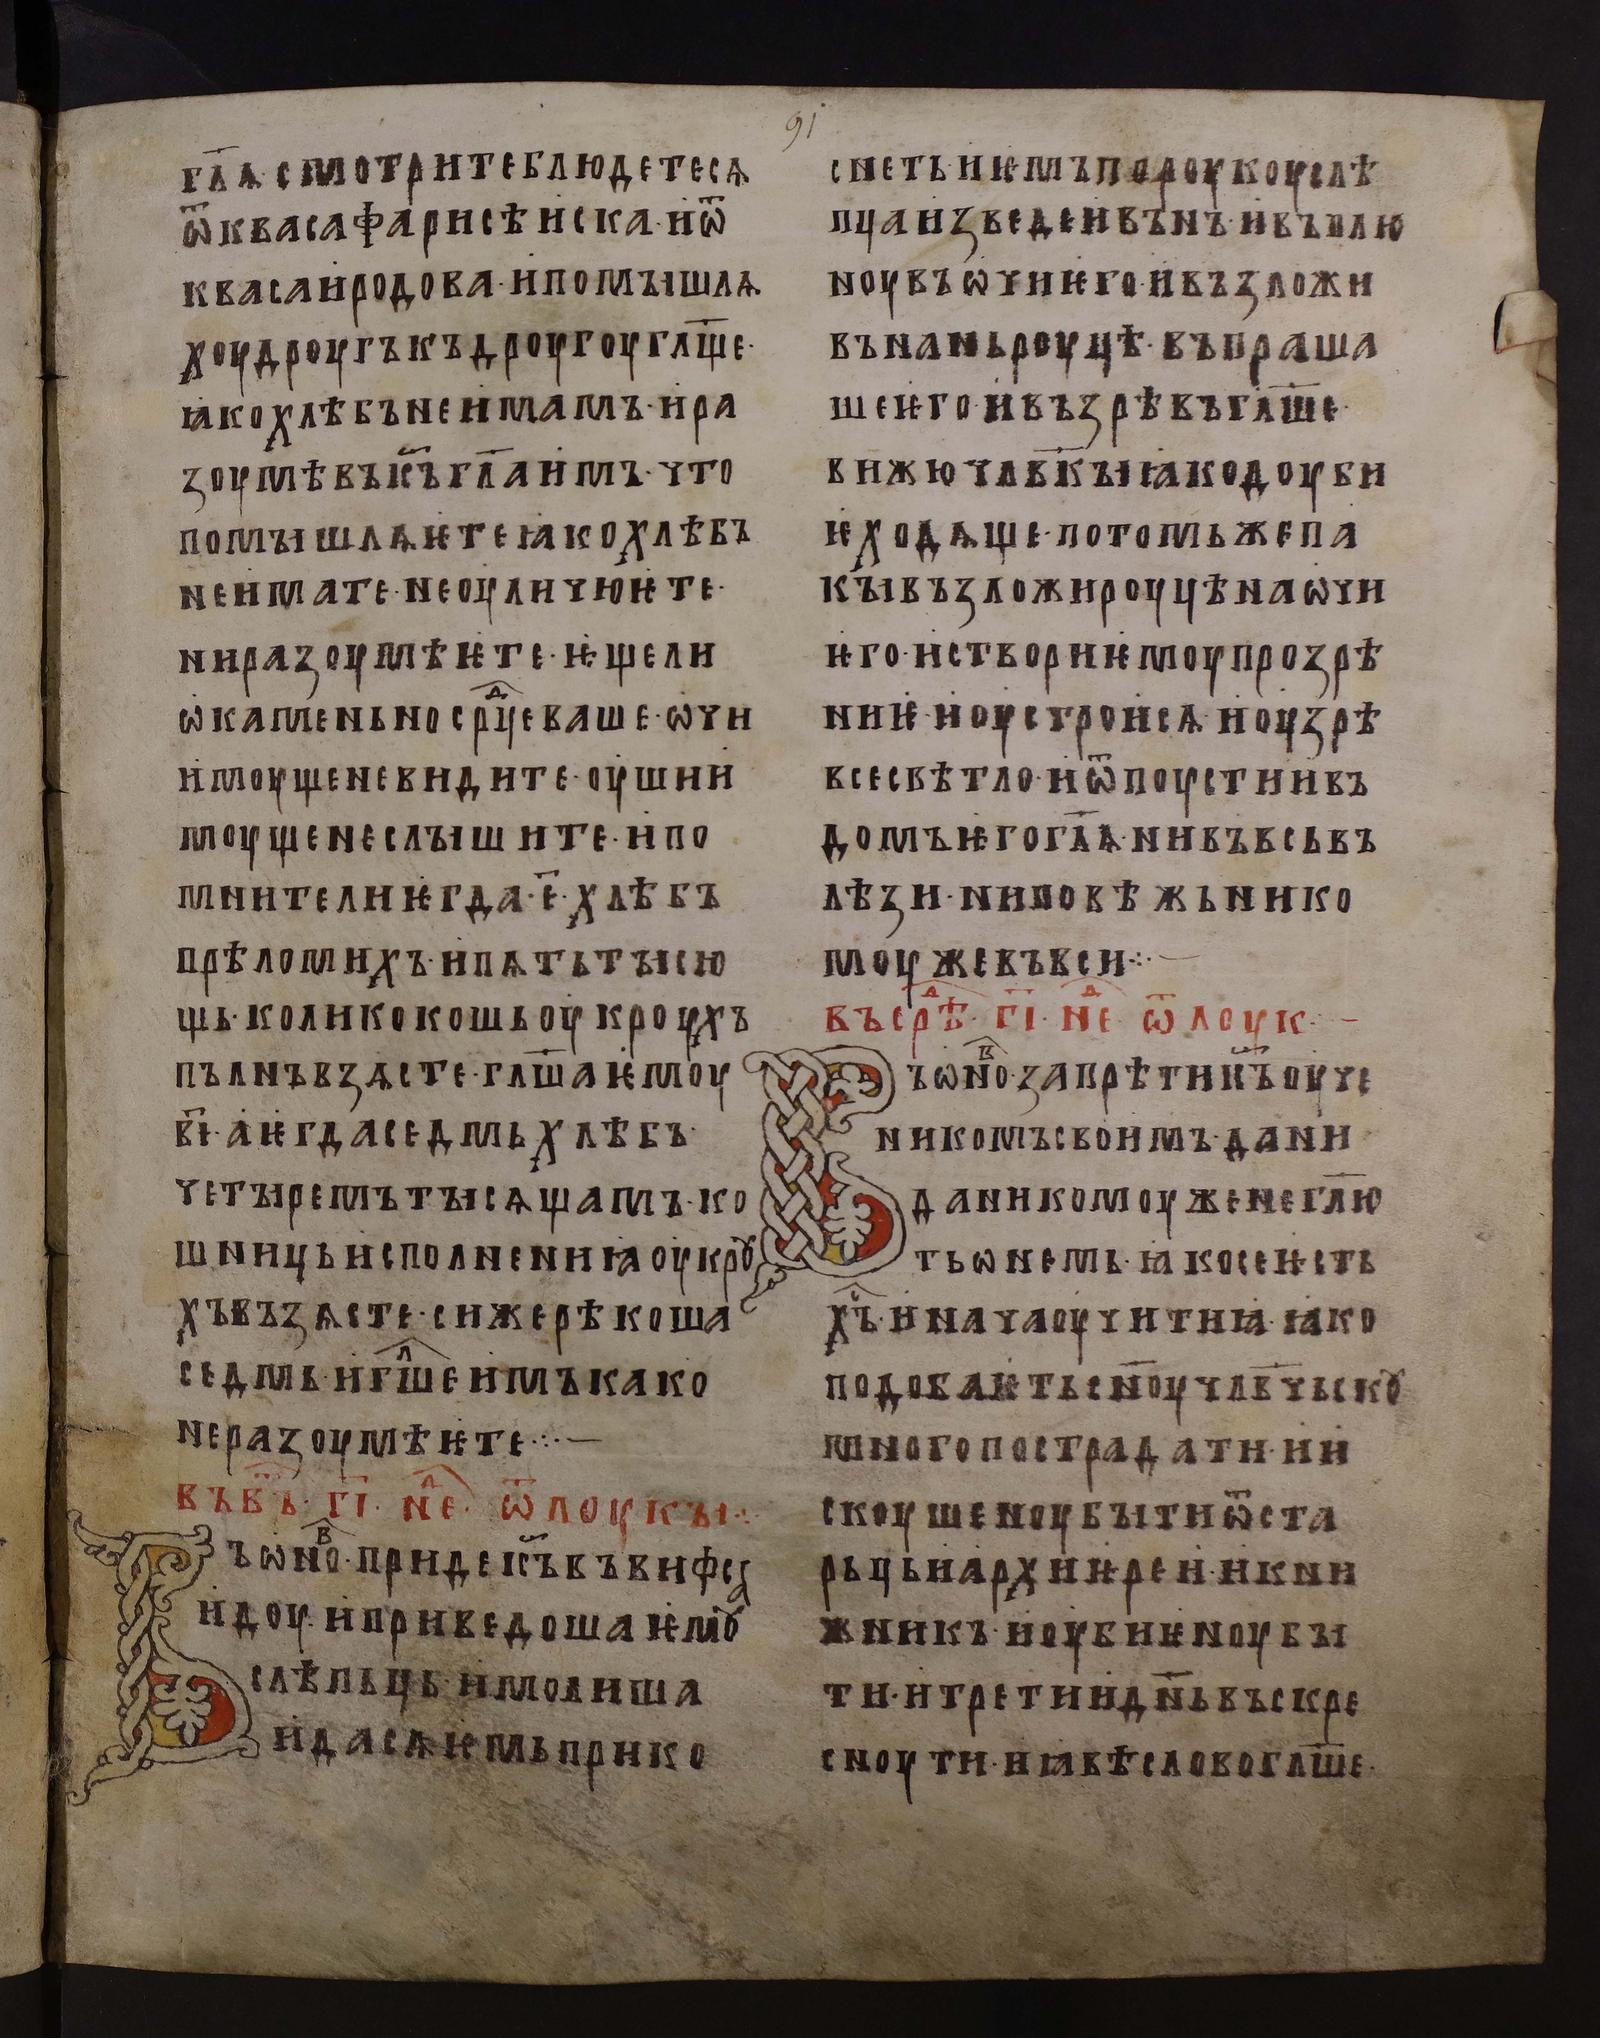 91
гл҃ѧ· смотритеблюдетесѧ
ѿквасафарисѣиска·иѿ
квасаиродова·ипомꙑшлѧ
хоудроугъкъдроугоугл҃ще·
ꙗкохлѣбънеимамъ·ира
ꙁоумѣвъіс҃ъгл҃аимъ·что
помꙑшлѧѥтеꙗкохлѣбъ
неимате·неоуличюѥте·
ниразоумѣѥте·ѥщели
ѡкаменьносрⷣцеваше·ѡчи
имоущеневидите·оушии
моущенеслꙑшите·ипо
мнителиѥгда·е҃·хлѣбъ
прѣломихъ·ипѧтьтꙑсю
щь·коликокошьоукроухъ
пълнъвзѧсте·гл҃шаѥмоу
в҃і·аѥгдаседмьхлѣбъ·
четꙑремътꙑсѧщамъ·ко
шницьисполнениꙗоукрꙋ
хъвъзѧсте·сижерѣкоша
седмь·игл҃шеимъкако
неразоумѣѥте·:·—
във҃ъ·г҃і·нⷣе·ѿлоукꙑ:·
Въѡноⷡ·придеіс҃ъвъвифса
идоу·иприведошаѥмꙋ
слѣпьць·имолиша
идасѧѥмьприко
снетьнѥмъпороукоуслѣ
пцаизведеивънъ·ивъплю
ноувъѡчиѥго·ивъꙁложи
вънаньроуцѣ·въпраша
шеѥго·ивъꙁрѣвъгл҃ше·
вижючлв҃кꙑꙗкодоуби
ѥходѧще·потомьжепа
кꙑвъꙁложироуцѣнаѡчи
ѥго·истворинѥмоупроꙁрѣ
ниѥ·иоустроисѧ·иоуꙁрѣ
всесвѣтло·иѿпоустиивъ
домъѥгогл҃ѧ·нивъвсьвъ
лѣꙁи·ниповѣжьнико
моужевъвси·:·—
въсрⷣѣ·г҃і·нⷣе·ѿлоук·—
Въѡноⷡ·запрѣтиіс҃ъоуче
никомъсвоимъ·дани
даникомоуженегл҃ю
тьѡнемь·ꙗкосеѥсть
хс҃ъ·иначаоучитиꙗ·ꙗко
подобаѥтьсн҃оучлв҃чьскꙋ
многопострадати·ии
скоушеноубꙑтиѿста
рьцьиархиѥреи·икни
жникъ·иоубиѥноубꙑ
ти·итретиидн҃ьвъскре
сноути·иꙗвѣсловогл҃ше·